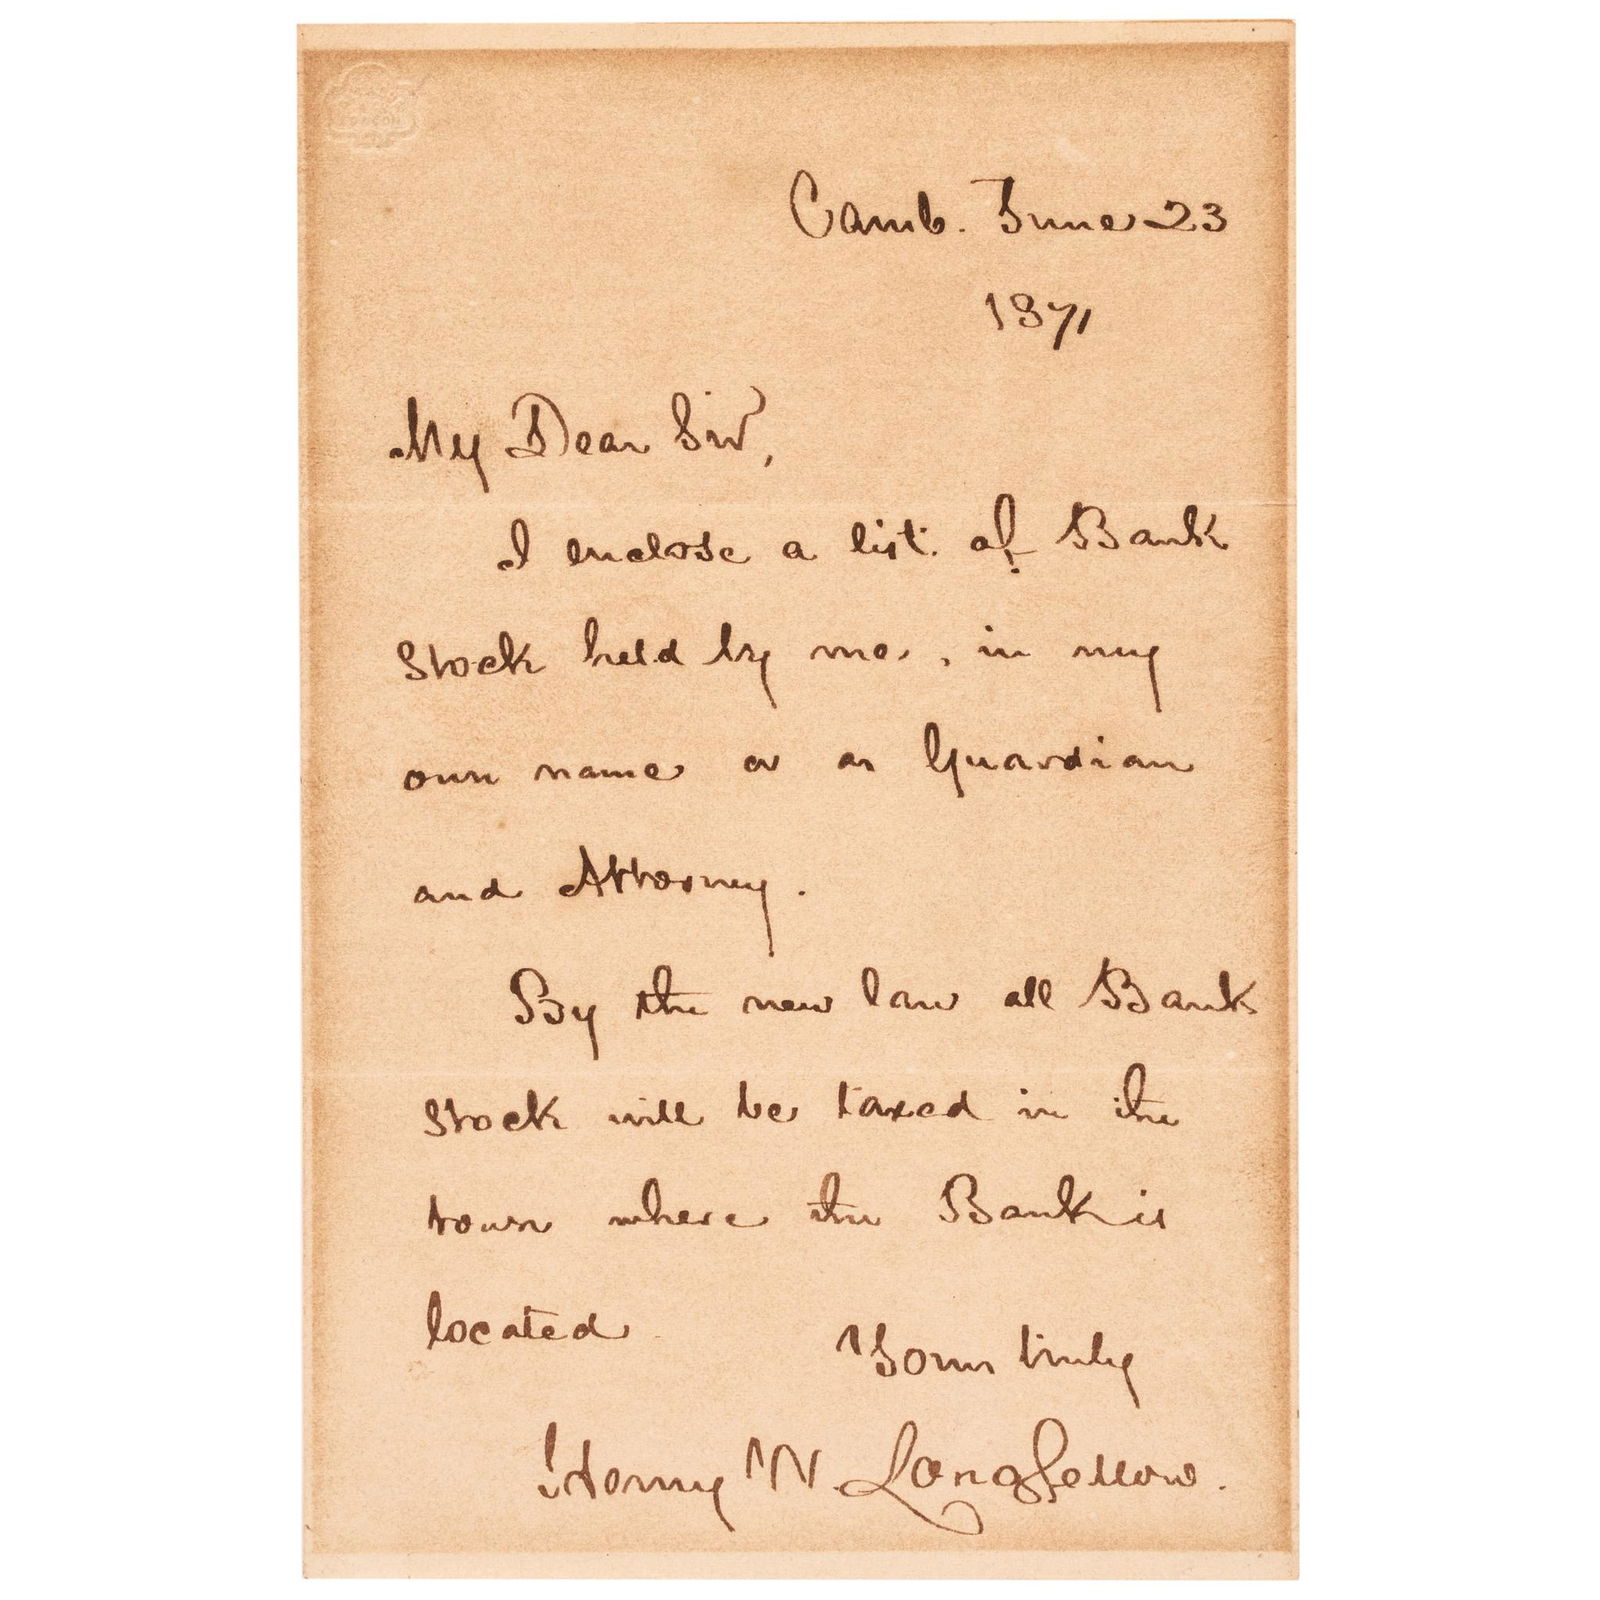 Camb. June 23
1871
My Dear Sir,
I enclose a list of Bank
Stock held by me, in my
own name or as Guardian
and Attorney.
By the new law all Bank
Stock will be taxed in the
town where the Bank is
located
Yours truly
Henry W. Longfellow.